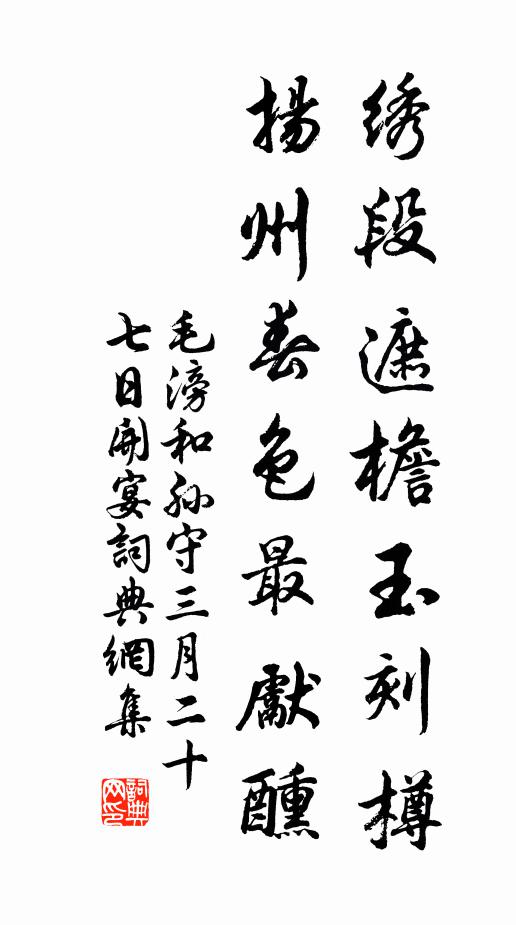 绣段遮檐玉刻樽
揚州春色最獻醺
毛滂和孙守三月二十
七日開宴詞典網集
詞典网印